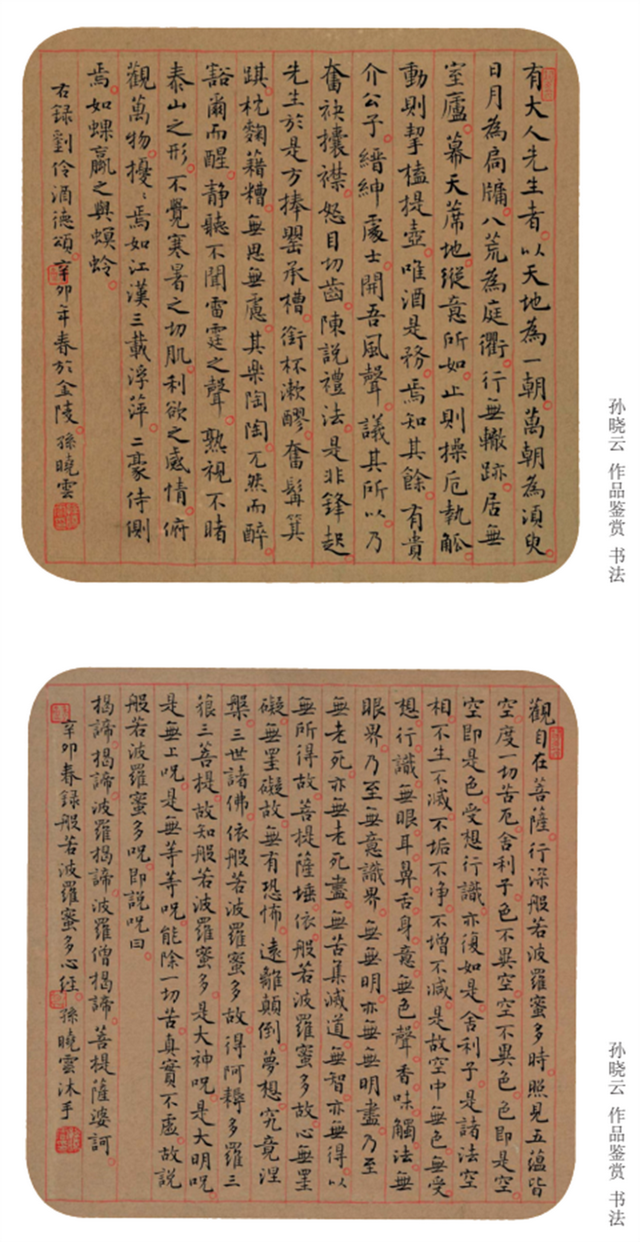 有大人先生者以天地為一朝萬朝為湏臾
日月為扃牖八荒為庭衢行無轍跡居無
室廬幕天席地縱意所如止則操卮執觚
動則挈榼提壺唯酒是務焉知其餘有貴
介公子縉紳處士聞吾風聲議其所以乃
奮袂攘襟怒目切齒陳說禮法是非鋒起
先生於是方捧罌承槽銜杯漱醪奮髯箕
踑枕麴籍糟無思無慮其樂陶陶兀然而醉
豁爾而醒靜聽不聞雷霆之聲熟視不睹
泰山之形不覺寒暑之切肌利欲之感情俯
觀萬物擾〻焉如江漢三載浮萍二豪侍側
焉如蜾蠃之與螟蛉
右録劉伶酒德頌辛卯年春於金陵孫曉雲
孙晓云 作品鉴赏 书法
觀自在菩薩行深般若波羅蜜多時照見五蘊皆
空度一切苦厄舍利子色不異空空不異色色即是空
空即是色受想行識亦復如是舍利子是諸法空
相不生不滅不垢不净不增不減是故空中無色無受
想行識無眼耳鼻舌身意無色聲香味觸法無
眼界乃至無意識界無無明亦無無明盡乃至
無老死亦無老死盡無苦集滅道無智亦無得以
無所得故菩提薩埵依般若波羅蜜多故心無罣
礙無罣礙故無有恐怖遠離顛倒夢想究竟涅
槃三世諸佛依般若波羅蜜多故得阿耨多羅三
藐三菩提故知般若波羅蜜多是大神呪是大明呪
是無上呪是無等等呪能除一切苦真實不虛故說
般若波羅蜜多呪即說呪曰
揭諦揭諦波羅揭諦波羅僧揭諦菩提薩婆訶
辛卯春録般若波羅蜜多心经孫曉雲沐手
孙晓云 作品鉴赏 书法